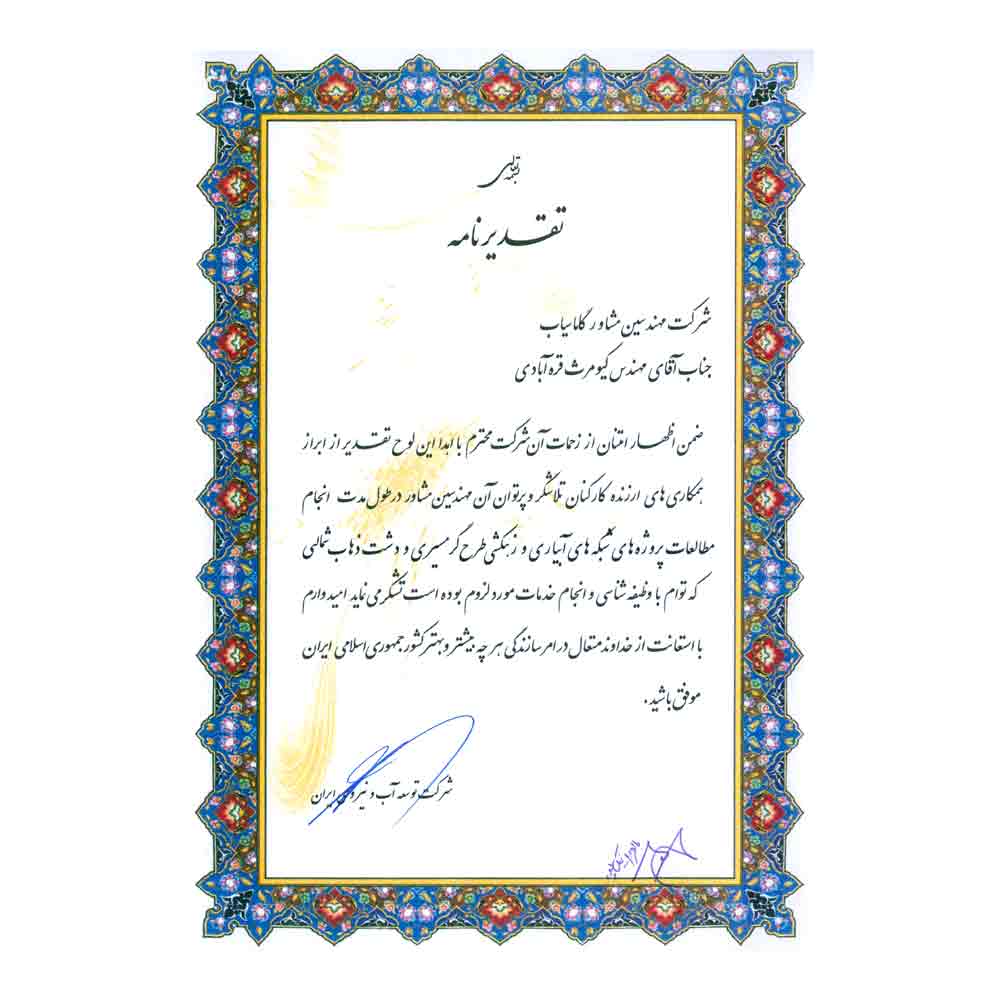 بسمه تعالی
تقدیرنامه
شرکت مهندسین مشاور گاماسیاب
جناب آقای مهندس کیومرث قره آبادی
ضمن اظهار امتنان از زحمات آن شرکت محترم با اهدا این لوح تقدیر از ابراز
همکاری های ارزنده کارکنان تلاشگر و پرتوان آن مهندسین مشاور در طول مدت انجام
مطالعات پروژه های شبکه های آبیاری و زهکشی طرح گرمسیری و دشت ذهاب شمالی
که توام با وظیفه شناسی و انجام خدمات مورد لزوم بوده است تشکر می نماید امید وارم
با استعانت از خداوند متعال در امر سازندگی هر چه بیشتر و بهتر کشور جمهوری اسلامی ایران
موفق باشید.
شرکت توسعه آب و نیروی ایران